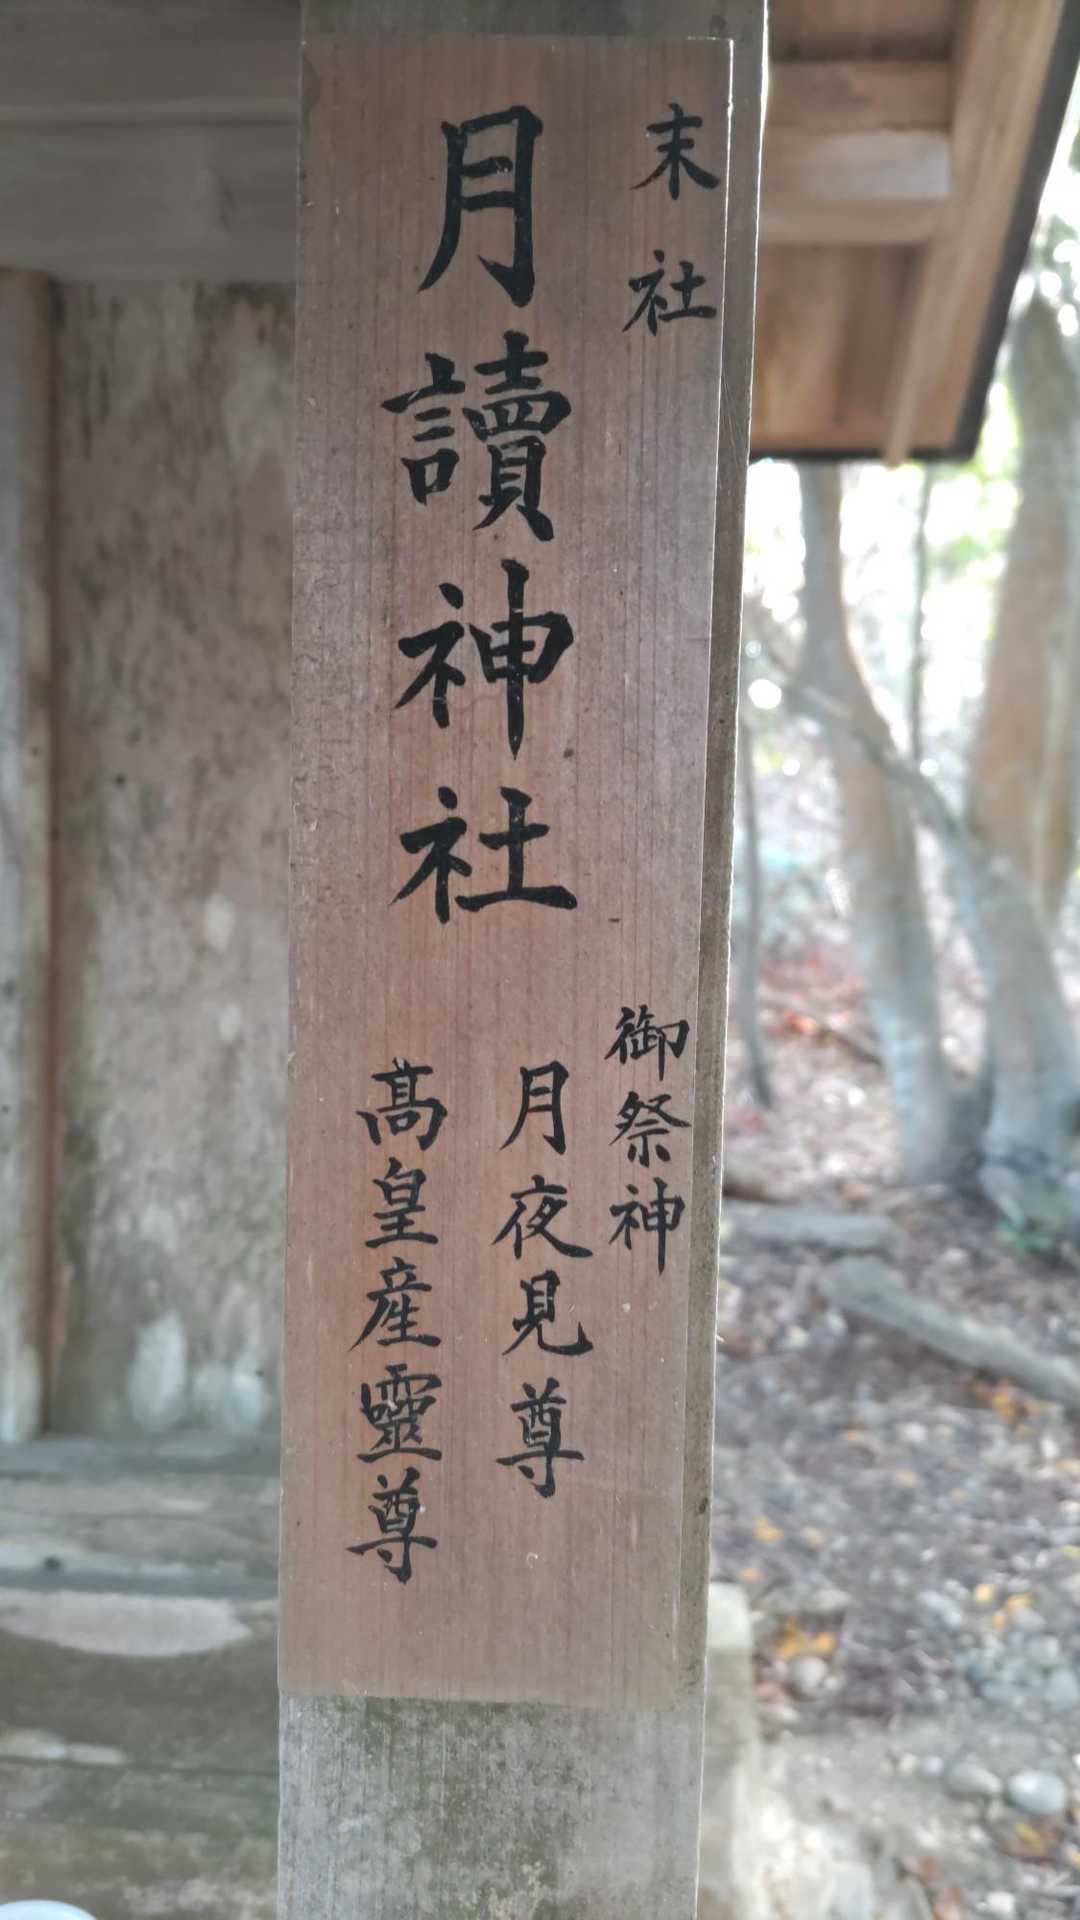 末社
月讀神社
御祭神
月夜見尊
高皇産靈尊